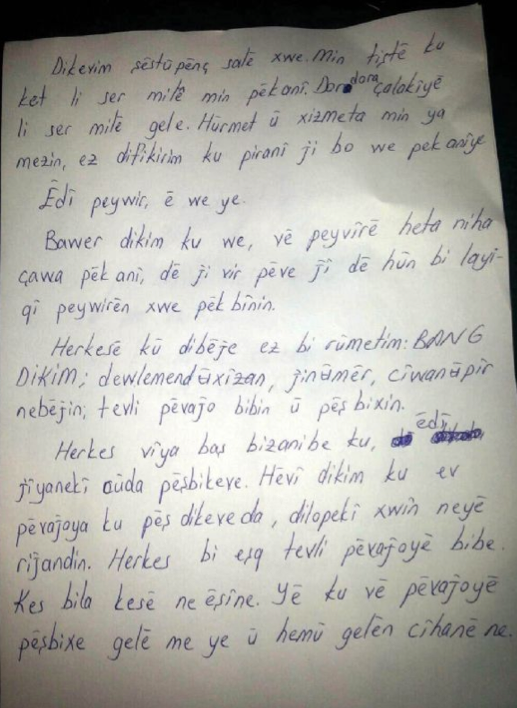 Dikevim şêstûpênç salê xwe. Min tiştê ku
ket li ser milê min pêkanî. Dora çalakîyê
li ser milê gele. Hûrmet û xizmeta min ya
mezin, ez difikirim ku piranî ji bo we pek anîye
Êdî peywir, ê we ye.
Bawer dikim ku we, vê peyvîrê heta niha
çawa pêk anî, dê ji vir pêve jî dê hûn bi layi-
qî peywirên xwe pêk bînin.
Herkesê kû dibêje ez bi rûmetim: BANG
DIKIM; dewlemend û xizan, jin û mêr, cîwan û pîr
nebêjin; tevli pêvajo bibin û pêş bixin.
Herkes vîya baş bizanibe ku, êdî
jîyanekî aûda pêşbikeve. Hêvî dikim ku ev
pêvajoya ku pêş dikeve da, dilopekî xwîn neyê
rijandin. Herkes bi eşq tevli pêvajoyê bibe.
Kes bila kesê ne êşîne. Yê ku vê pêvajoyê
pêşbixe gelê me ye û hemû gelên cîhanê ne.